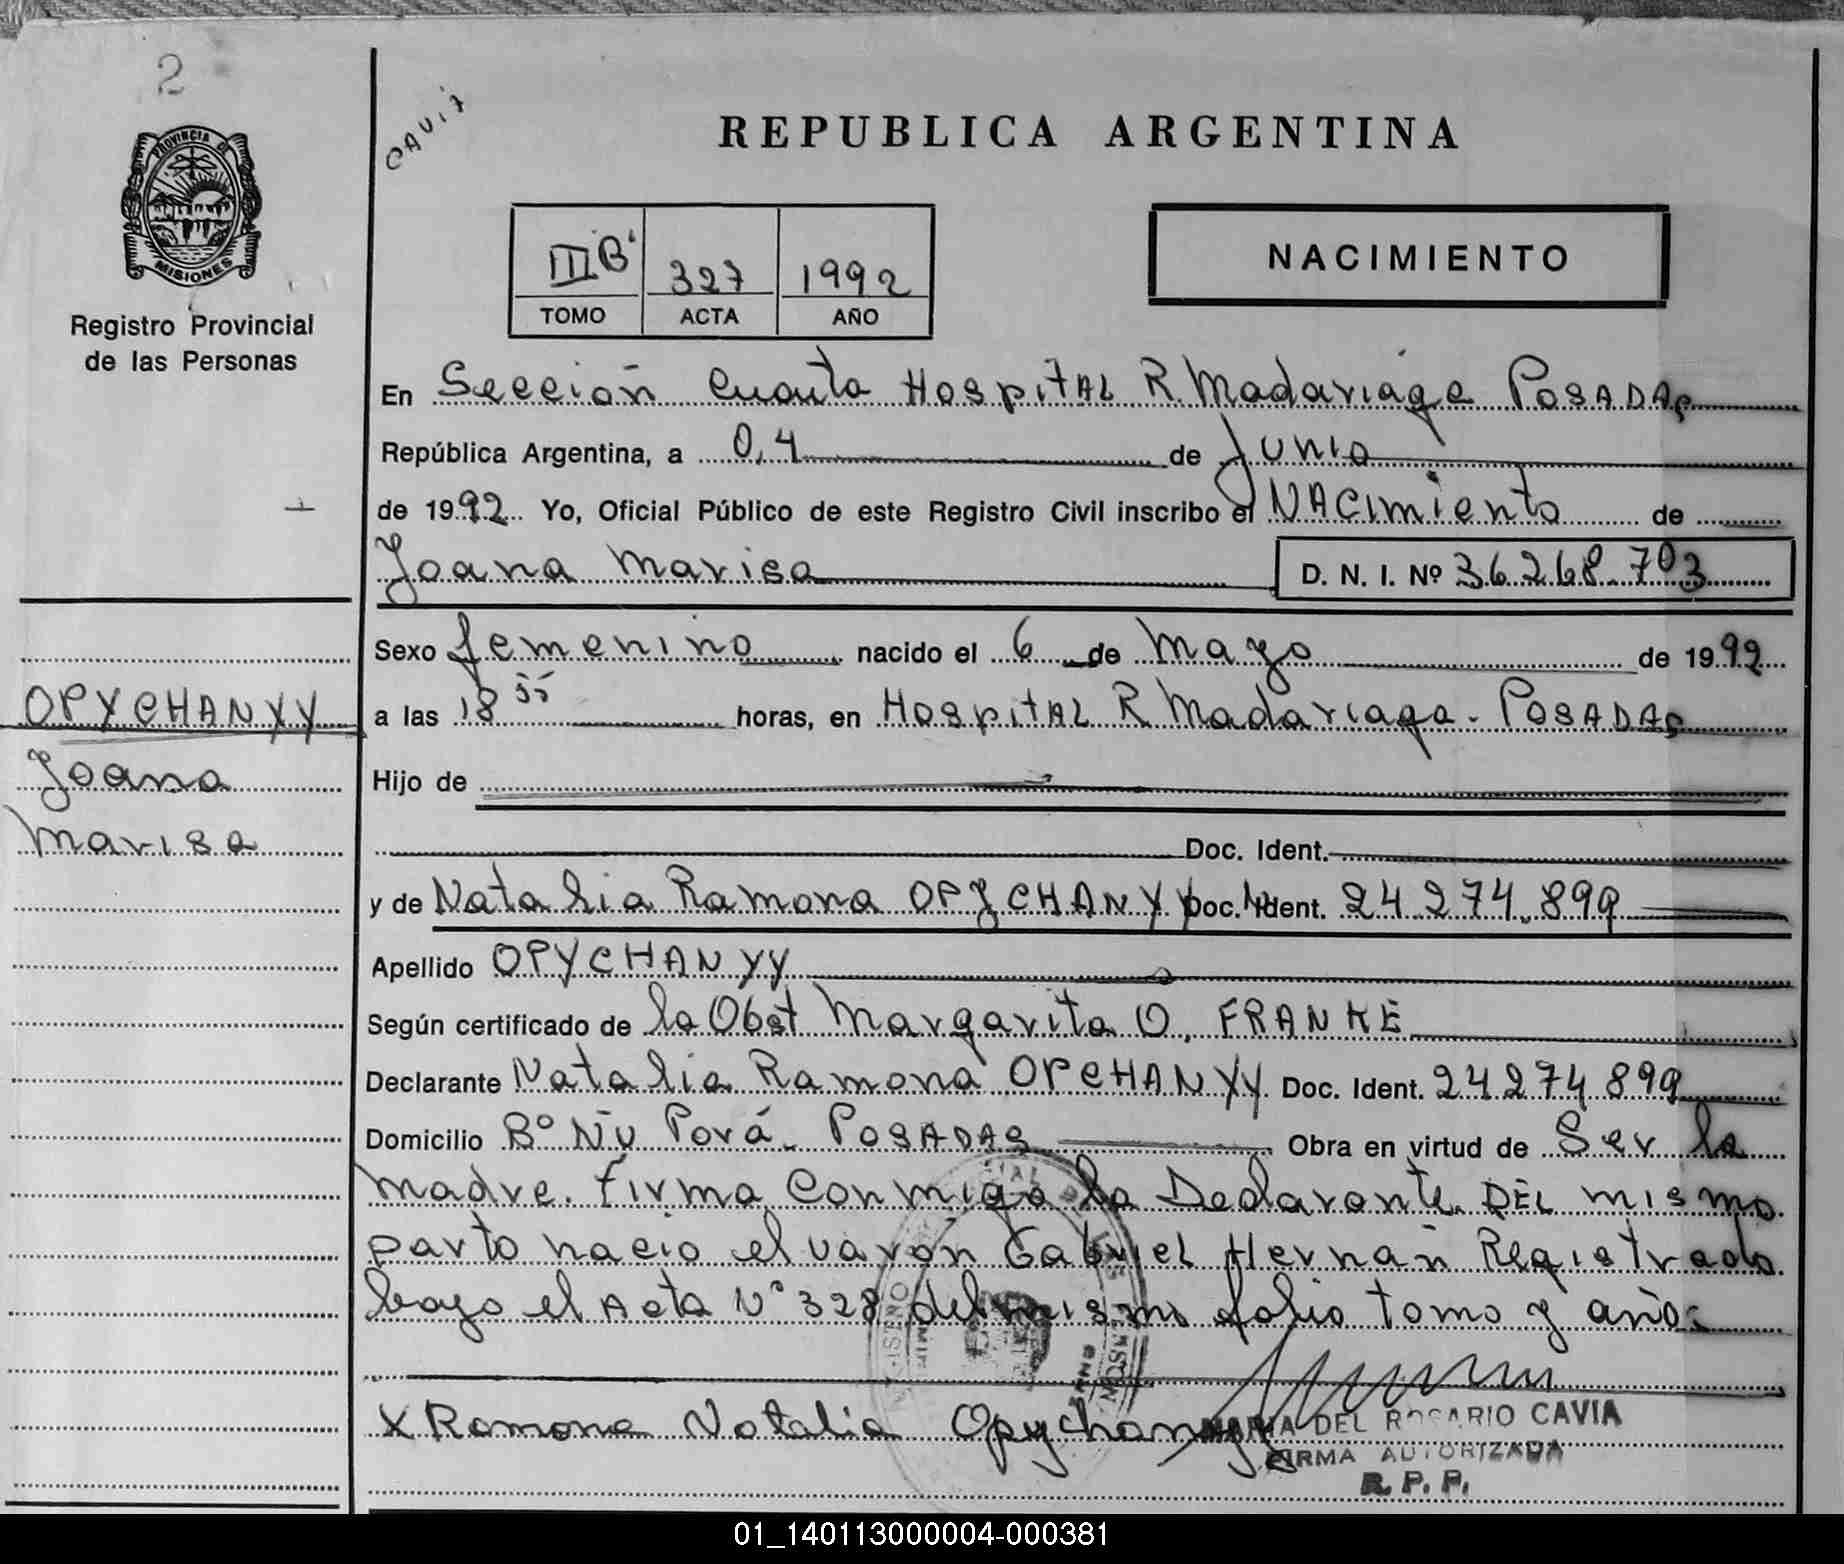 2
CAVIA
PROVINCIA DE
MISIONES
Registro Provincial
de las Personas
REPUBLICA ARGENTINA
III "B" 327 1992
TOMO ACTA AÑO
NACIMIENTO
En Sección Cuarta Hospital R. Madariaga POSADAS
República Argentina, a 04 de Junio
de 1992 Yo, Oficial Público de este Registro Civil inscribo el NACimiento de
Joana Marisa D. N. I. Nº 36.268.703
Sexo femenino nacido el 6 de Mayo de 1992
OPYCHANYY
a las 18 55 horas, en Hospital R Madariaga - POSADAS
Joana
Hijo de
Marisa
Doc. Ident.
y de Natalia Ramona OPYCHANYY Doc. Ident. 24.274.899
Apellido OPYCHANYY
Según certificado de la Obst Margarita O. FRANKE
Declarante Natalia Ramona OPCHANYY Doc. Ident. 24.274.899
Domicilio Bº Ñu Porá - POSADAS Obra en virtud de Ser la
madre. Firma Conmigo la Declarante. DEL mismo
parto nacio el varón Gabriel Hernan Registrado
bajo el Acta Nº 328 del mismo folio tomo y año:
X Ramona Natalia Opychanyy
MARIA DEL ROSARIO CAVIA
FIRMA AUTORIZADA
R. P. P.
01_140113000004-000381